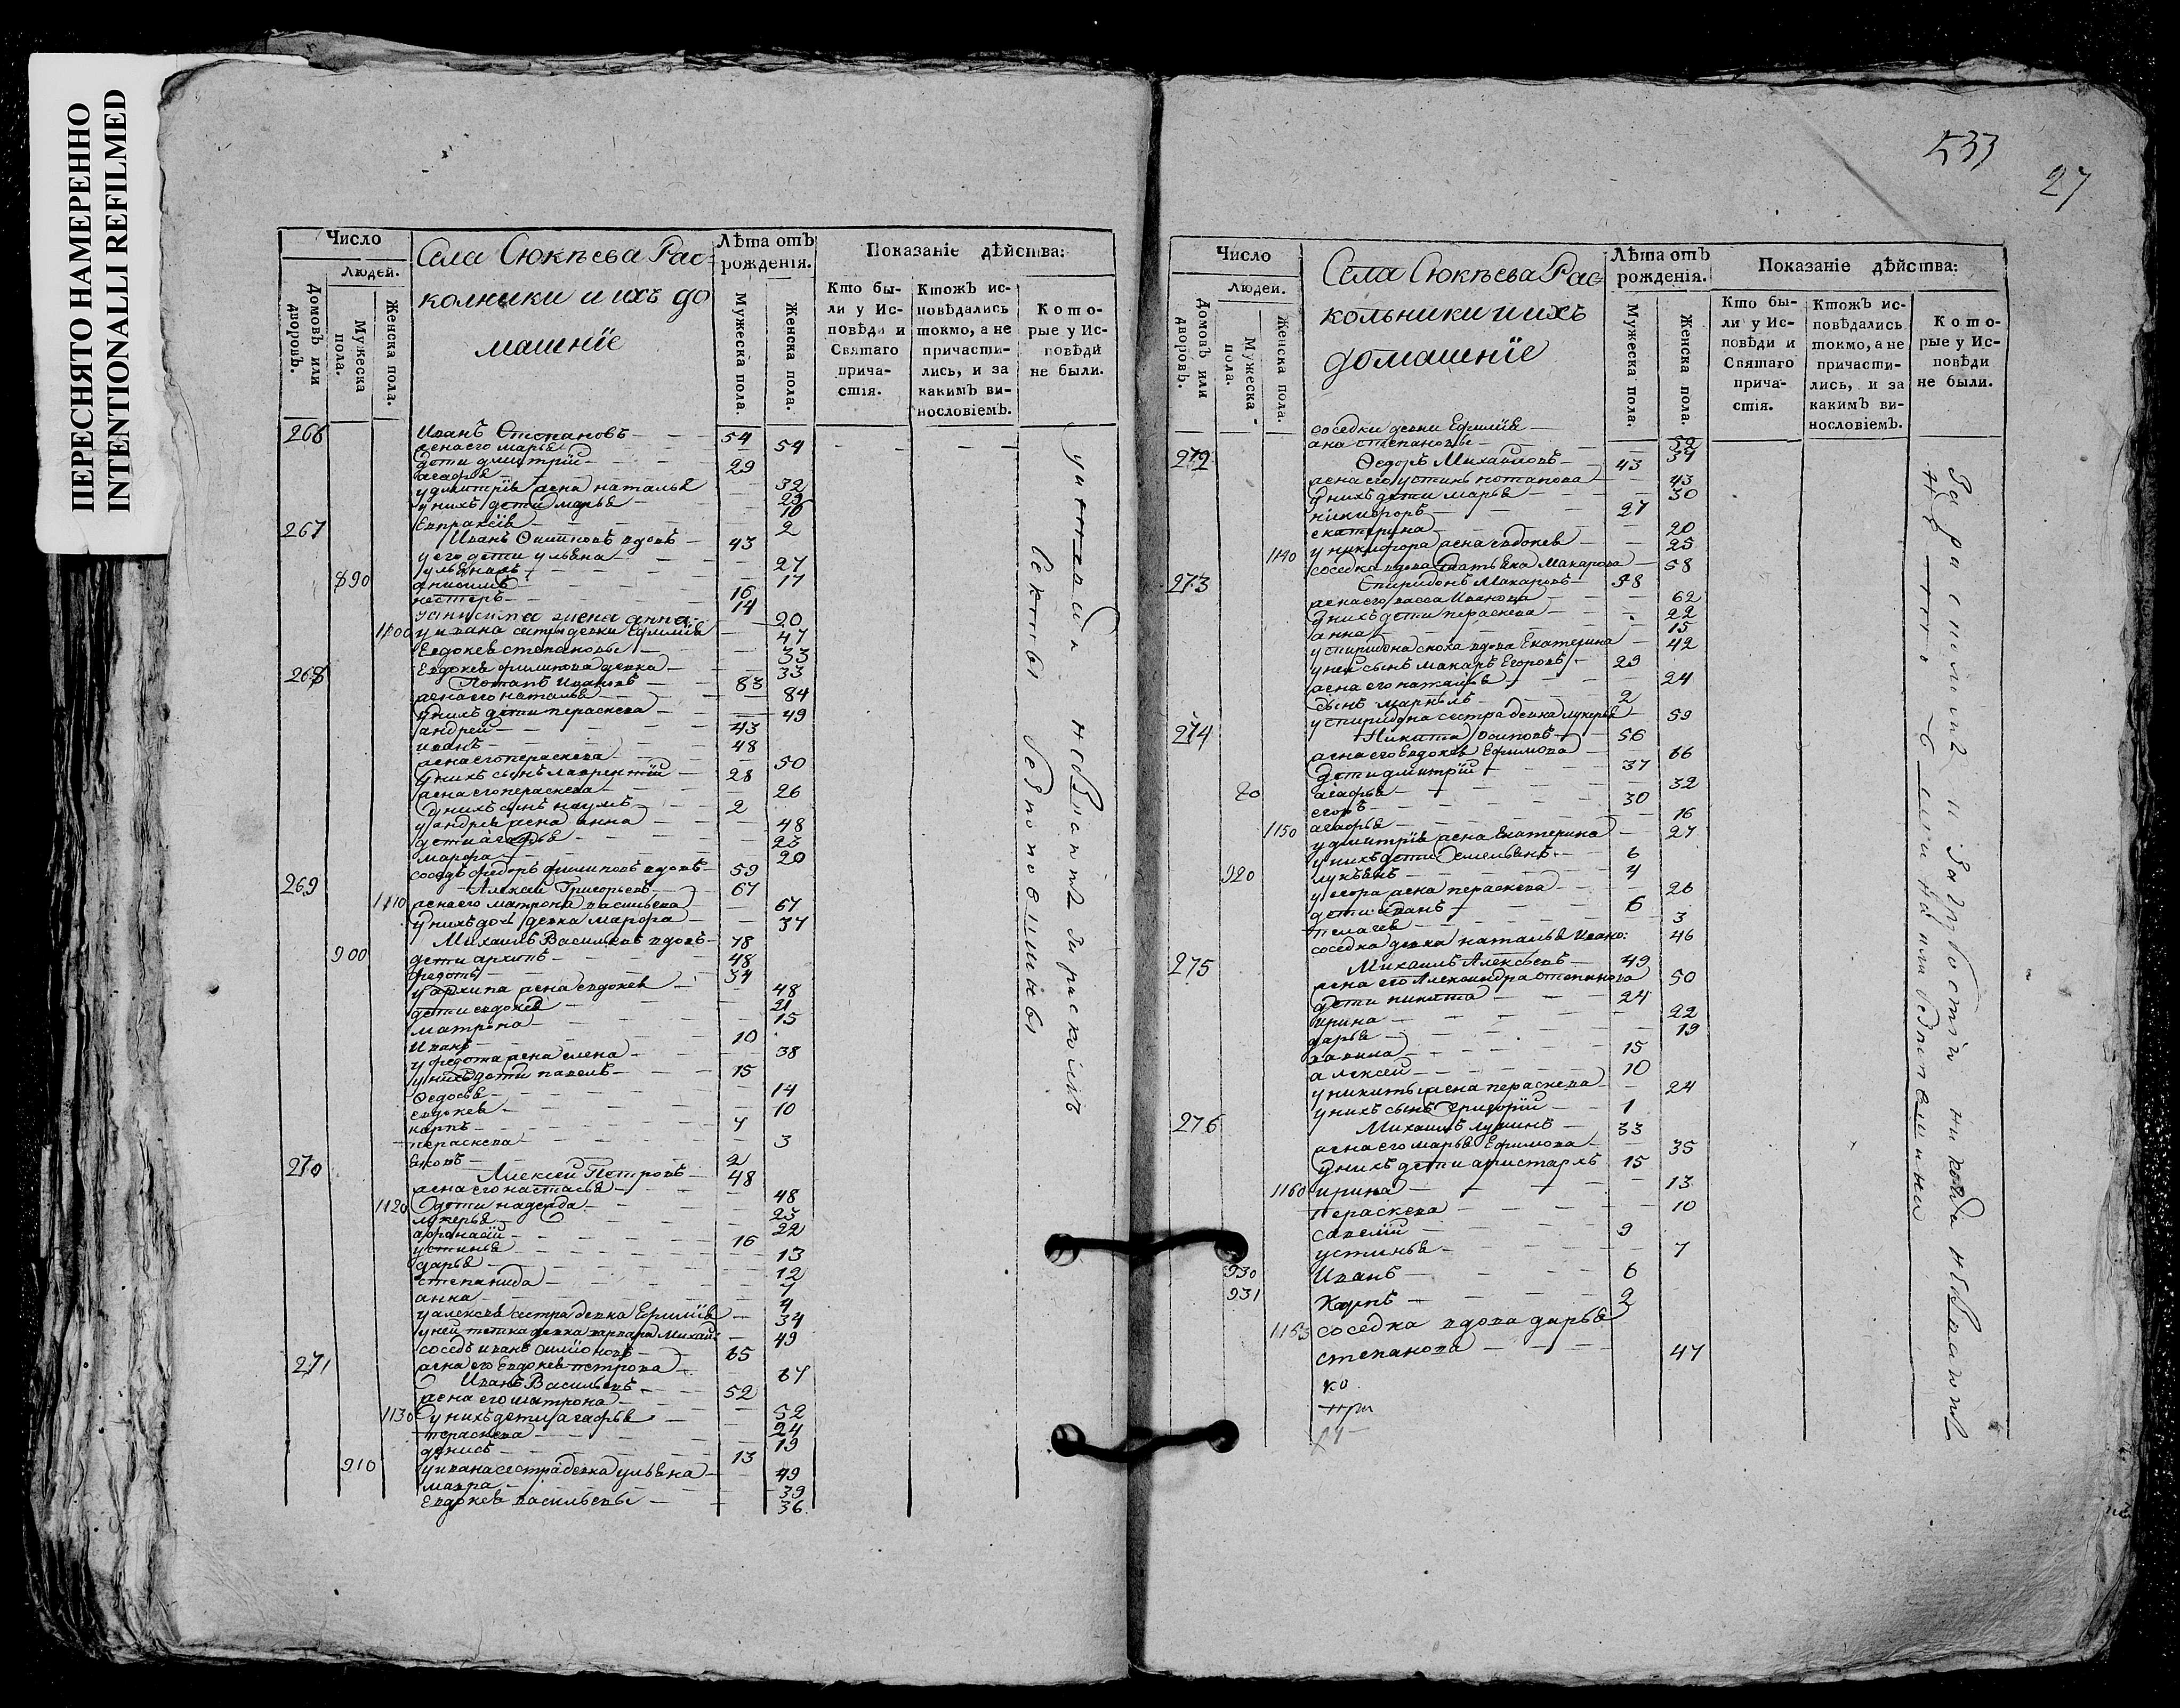 ПЕРЕСНЯТО НАМЕРЕННО
INTENTIONALLI REFILMED
Число
Людей.
Домовъ или дворовъ.
Мужеска пола.
Женска пола.
Села Сюкѣева Рас-
колники и ихъ до
машнїе
Лѣта отъ рожденія.
Мужеска пола.
Женска пола.
Показаніе дѣйства:
Кто бы-
ли у Ис-
повѣди и
Святаго
прича-
стія.
Ктожъ ис-
повѣдались
токмо, а не
причасти-
лись, и за
какимъ ви-
нословіемъ.
Кото-
рые у Ис-
повѣди
не были.
266 Иванъ Степановъ 54
жена его марья 54
дети дмитрїи 29
агафья 32
у дмитрїя жена наталья 29
у нихъ дети марья 10
Евпраксїя 2
267 Иванъ вдовъ 43
у его дети ульяна 27
17
890
16
нестеръ 14
жена анна 20
1100 у ивана сестры девки Ефимїя 47
Евдокея степановы 33
Евдокея филипова девка 33
268 Потапъ Ивановъ 83
жена его наталья 84
у нихъ дети пераскева 49
андреи 43
иванъ 48
жена его пераскева 50
у нихъ сынъ лаврентїи 28
жена его пераскева 26
у нихъ сынъ наумъ 2
у андрея жена анна 48
дети агафья 23
марфа 20
соседъ федоръ филиповъ вдовъ 59
269 Алексеи Григорьевъ 67
1110 жена его матрона васильева 67
у нихъ дочь девка марфа 37
Михаилъ Васильевъ вдовъ 78
900 дети архипъ 48
федотъ 34
у архипа жена евдокея 48
дети евдокея 21
матрона 15
Иванъ 10
у федота жена елена 38
у нихъ дети павелъ 15
Федосья 14
евдокея 10
карпъ 4
пераскева 3
яковъ 2
270 Алексеи Петровъ 48
жена его настасья 48
1120 дети надежда 23
лукерья 22
афонасїи 16
устинья 13
дарья 12
степанида 7
анна 4
у алексея сестра девка Ефимїя 34
у неи тетка девка варвара Михаи: 49
соседъ иванъ 65
жена его Евдокея петрова 67
271 Иванъ Васильевъ 52
жена его матрона 52
1130 у нихъ дети агафья 24
пераскева 19
денисъ 13
910 у ивана сестра девка ульяна 49
мавра 39
Евдокея васильевы 36
секты безпоповшины
533
27
Число
Людей.
Домовъ или дворовъ.
Мужеска пола.
Женска пола.
Села Сюкѣева Рас-
кольники и ихъ
домашнїе
Лѣта отъ рожденія.
Мужеска пола.
Женска пола.
Показаніе дѣйства:
Кто бы-
ли у Ис-
повѣди и
Святаго
прича-
стія.
Ктожъ ис-
повѣдались
токмо, а не
причасти-
лись, и за
какимъ ви-
нословіемъ.
Кото-
рые у Ис-
повѣди
не были.
соседки девки Ефимїя 52
ана степановы 37
272 Федоръ Михаиловъ 43
жена его устинья потапова 43
у нихъ дети марья 30
никифоръ 27
екатерина 20
1140 у никифора жена евдокея 25
соседка вдова Татьяна Макарова 58
273 Спиридонъ Макаровъ 58
жена его васса Иванова 62
у нихъ дети пераскева 22
анна 15
у спиридона сноха вдова Екатерина 42
у неи сынъ макаръ Егоровъ 29
жена его наталья 24
сынъ маркелъ 2
у спиридона сестра девка лукерья 59
274 Никита Осиповъ 56
жена его Евдокея Ефимова 66
дети дмитрїи 37
20 агафья 32
егоръ 30
1150 агафья 16
у дмитрїя жена Екатерина 27
у нихъ дети Емельянъ 6
920 лукьянъ 4
у егора жена пераскева 26
дети иванъ 6
пелагея 3
соседка девка наталья Ивано: 46
275 Михаилъ Алексѣевъ 49
жена его Александра степанова 50
дети никита 24
ирина 22
дарья 19
вавила 15
алексеи 10
у никиты жена пераскева 24
у нихъ сынъ григорїи 1
276 Михаилъ лукинъ 33
жена его марья Ефимова 35
у нихъ дети аристархъ 15
1160 ирина 13
пераскева 10
савелїи 9
устинья 7
930 Иванъ 6
931 Карпъ 2
1163 соседка вдова дарья
степанова 47
ко
при
За расколомъ и загрубостїю никогда не бываютъ